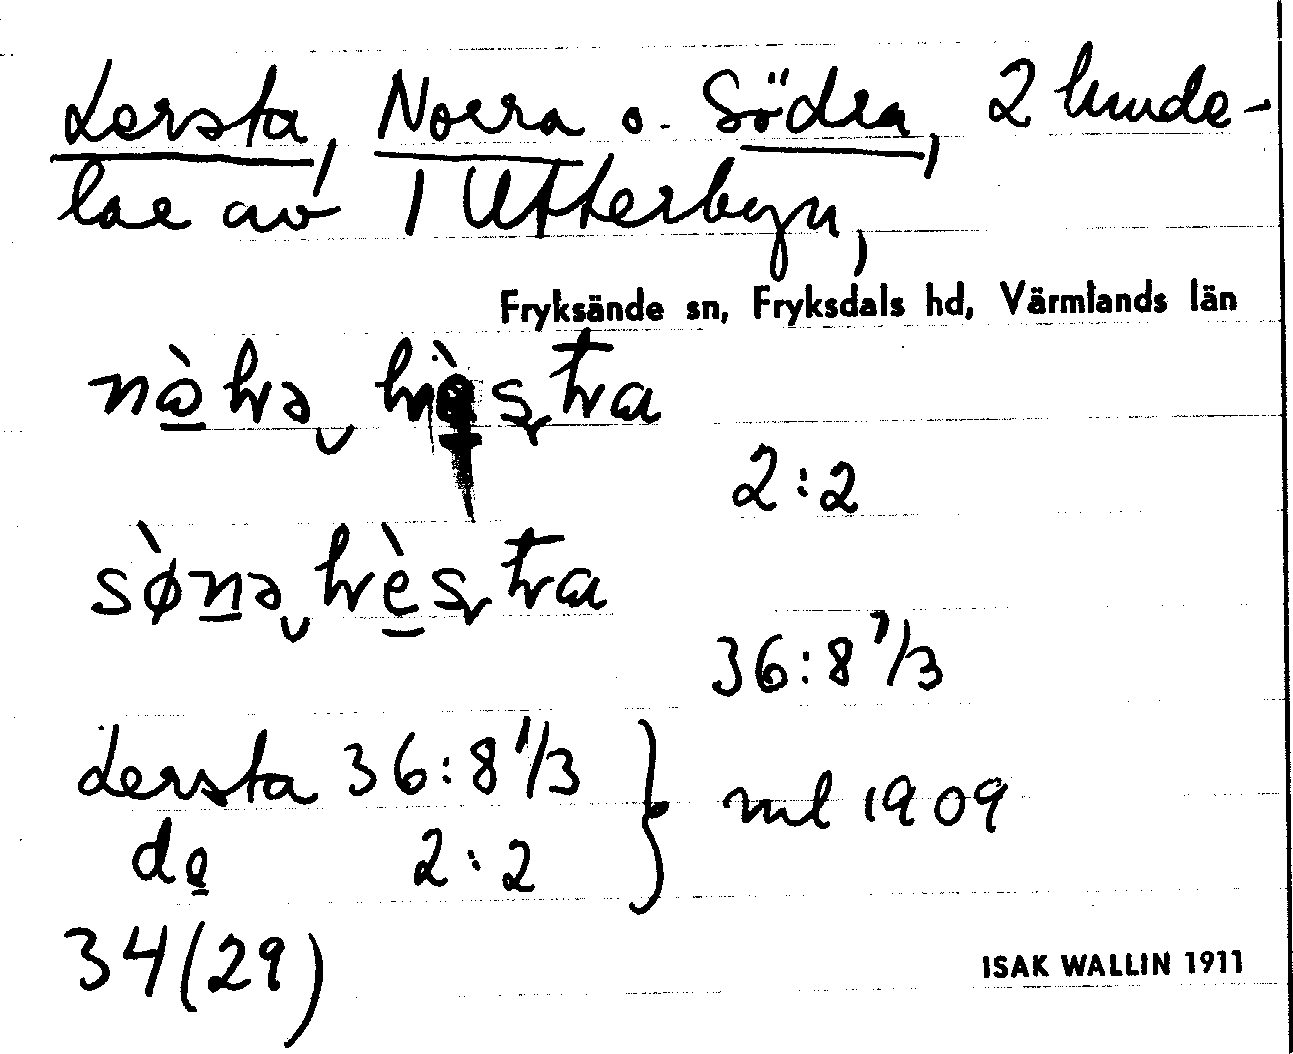 Lersta, Norra o. Södra, 2 hmde-
lar av 1 Utterbyn,
Fryksände sn, Fryksdals hd, Värmlands län
2:2
36:8 1/3
Lersta 36:8 1/3 } ml 1909
do 2:2
34(29)
ISAK WALLIN 1911